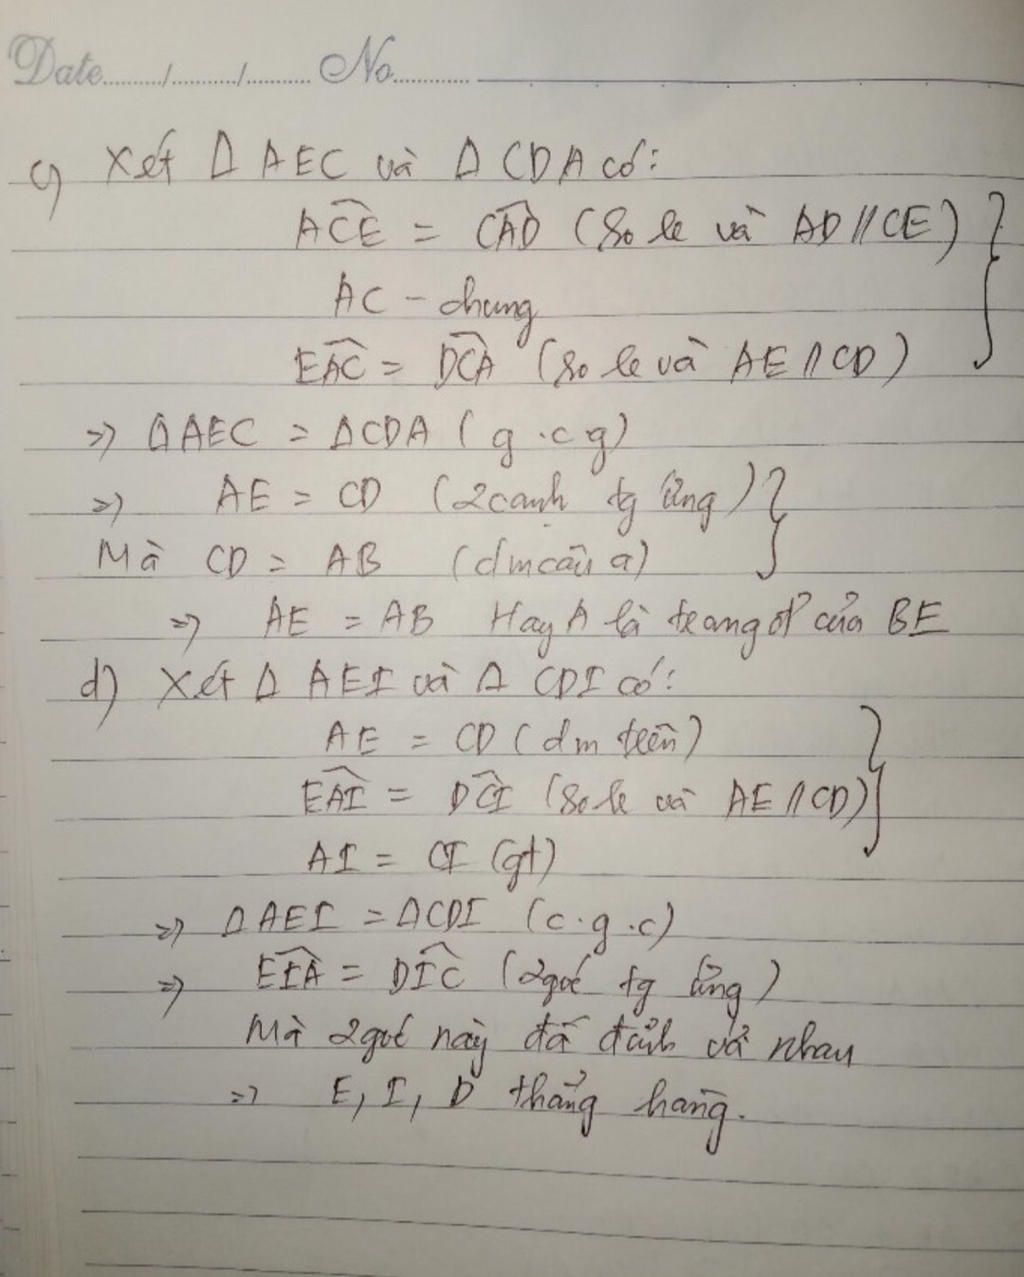 Date......../......../........ No............
c) Xét Δ AEC và Δ CDA có:
ACE = CAD (So le và AD // CE)
AC - chung
EAC = DCA (So le và AE // CD)
=> ΔAEC = ΔCDA (g.c.g)
=> AE = CD (2 cạnh tg ứng)
Mà CD = AB (cm câu a)
=> AE = AB Hay A là trung đ' của BE
d) Xét Δ AEI và Δ CDI có:
AE = CD (cm trên)
EAI = DCI (So le và AE // CD)
AI = CI (gt)
=> ΔAEI = ΔCDI (c.g.c)
=> EIA = DIC (2 góc tg ứng)
Mà 2 góc này đđ đỉnh với nhau
=> E, I, D thẳng hàng.